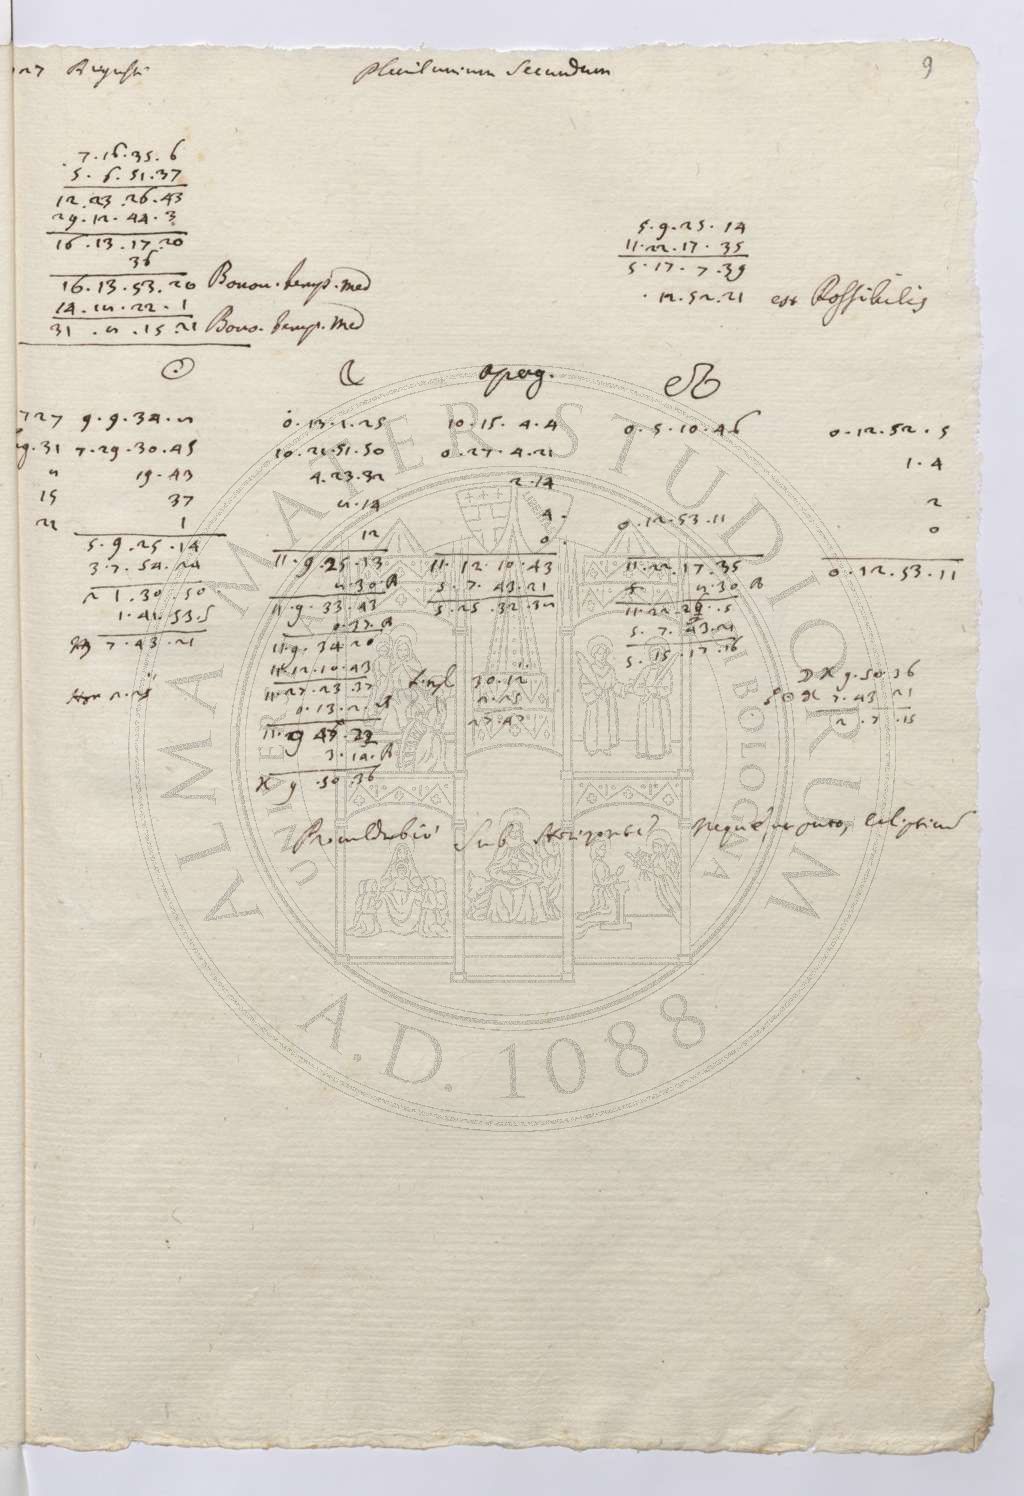 727 Augusti Plenilunium Secundum 9
7.16.35.6
5.6.51.37
12.23.26.43
29.12.44.3
16.13.17.20
36
16.13.53.20 Bonon. temp. med
14.11.22.1
31.2.15.21 Bono. temp. Med
5.9.25.14
11.22.17.35
5.17.7.39
12.52.21 est Possibilis
☉ ☾ apog. ☊
727 9.9.34.2 0.13.1.25 10.15.4.4 0.5.10.46 0.12.52.5
g.31 7.29.30.45 10.21.51.50 0.27.4.21 1.4
2 19.43 4.23.32 2.14 2
15 37 2.14 4. 0.12.53.11 0
22 1 12 0.
5.9.25.14 11.9.25.13 11.12.10.43 11.22.17.35 0.12.53.11
3.7.54.24 2.30.A 5.7.43.21 2.30 A
2 1.30.50 11.9.33.43 5.25.32.32 11.22.20.5
1.41.53.5 0.37.A 5.7.43.21
♍ 7.43.21 11.9.34.20 5.15.17.16
11.12.10.43
Hor 2.25 11.27.23.37 30.12 ☽ ♓ 9.50.36
0.13.2.A 2.25 ☉ ♓ 7.43 21
11.9.47.22 27.47 2.7.15
3.14.A
♓ 9.50.36
Procul dubio Sub Horizonte eclipticus
ALMA MATER STUDIORUM
UNIVERSITÀ DI BOLOGNA
A.D. 1088